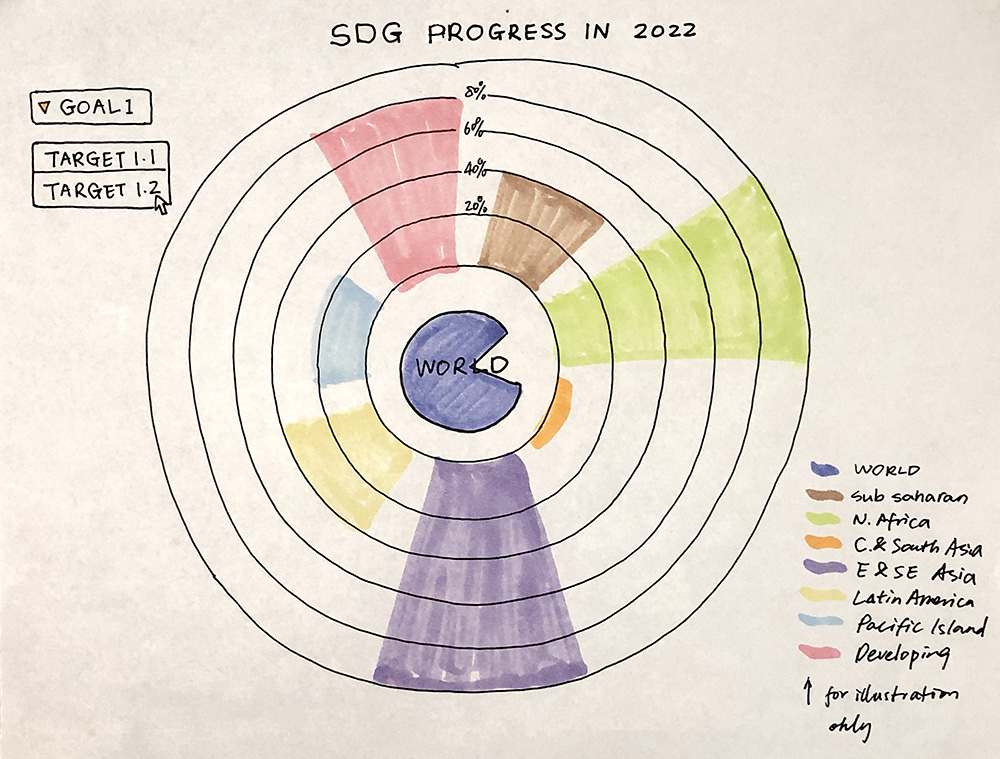 SDG PROGRESS IN 2022
GOAL 1
TARGET 1.1
TARGET 1.2
80%
60%
40%
20%
WORLD
WORLD
Sub saharan
N. Africa
C.& South Asia
E & SE Asia
Latin America
Pacific Island
Developing
↑ for illustration
only